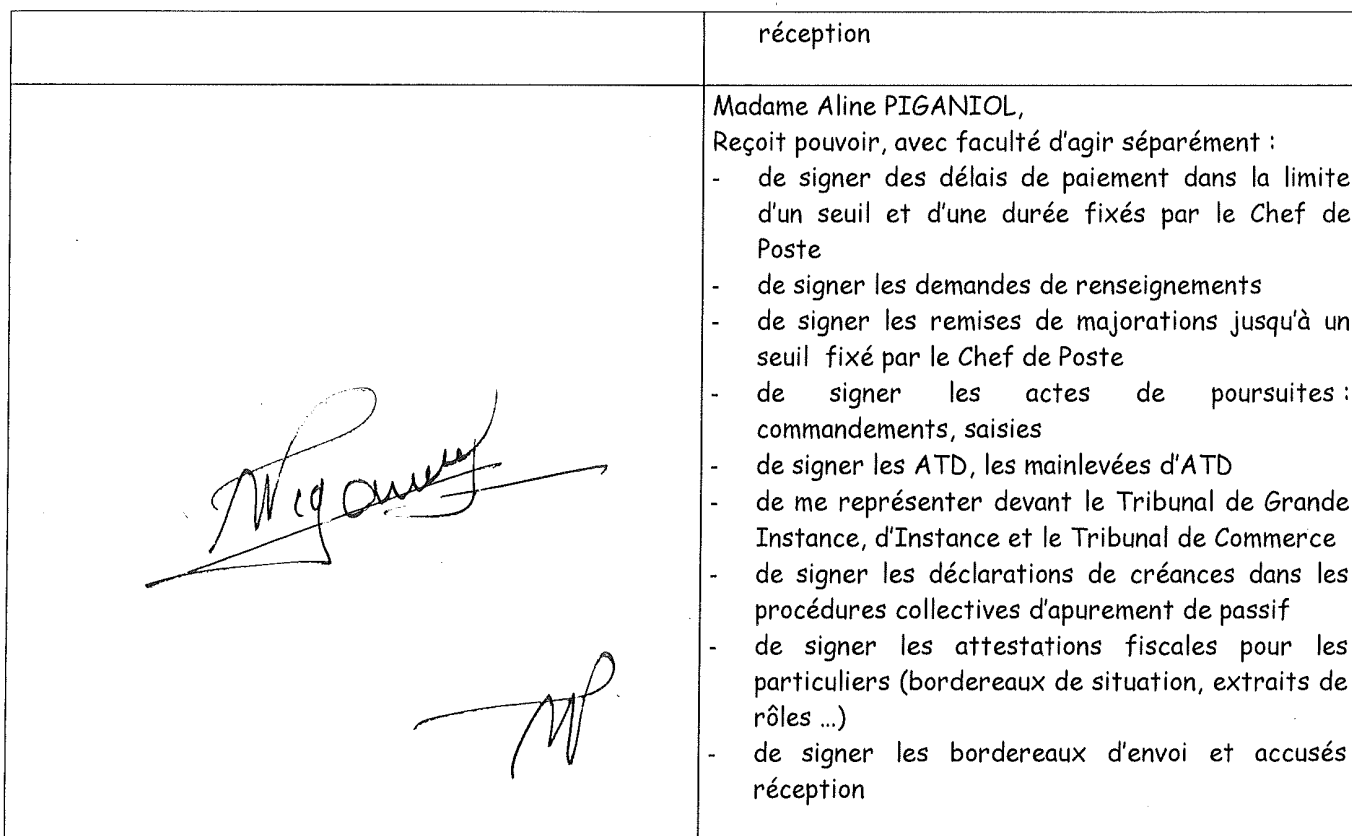 réception
Madame Aline PIGANIOL,
Reçoit pouvoir, avec faculté d'agir séparément :
- de signer des délais de paiement dans la limite
d'un seuil et d'une durée fixés par le Chef de
Poste
- de signer les demandes de renseignements
- de signer les remises de majorations jusqu'à un
seuil fixé par le Chef de Poste
- de signer les actes de poursuites :
commandements, saisies
- de signer les ATD, les mainlevées d'ATD
- de me représenter devant le Tribunal de Grande
Instance, d'Instance et le Tribunal de Commerce
- de signer les déclarations de créances dans les
procédures collectives d'apurement de passif
- de signer les attestations fiscales pour les
particuliers (bordereaux de situation, extraits de
rôles ...)
- de signer les bordereaux d'envoi et accusés
réception